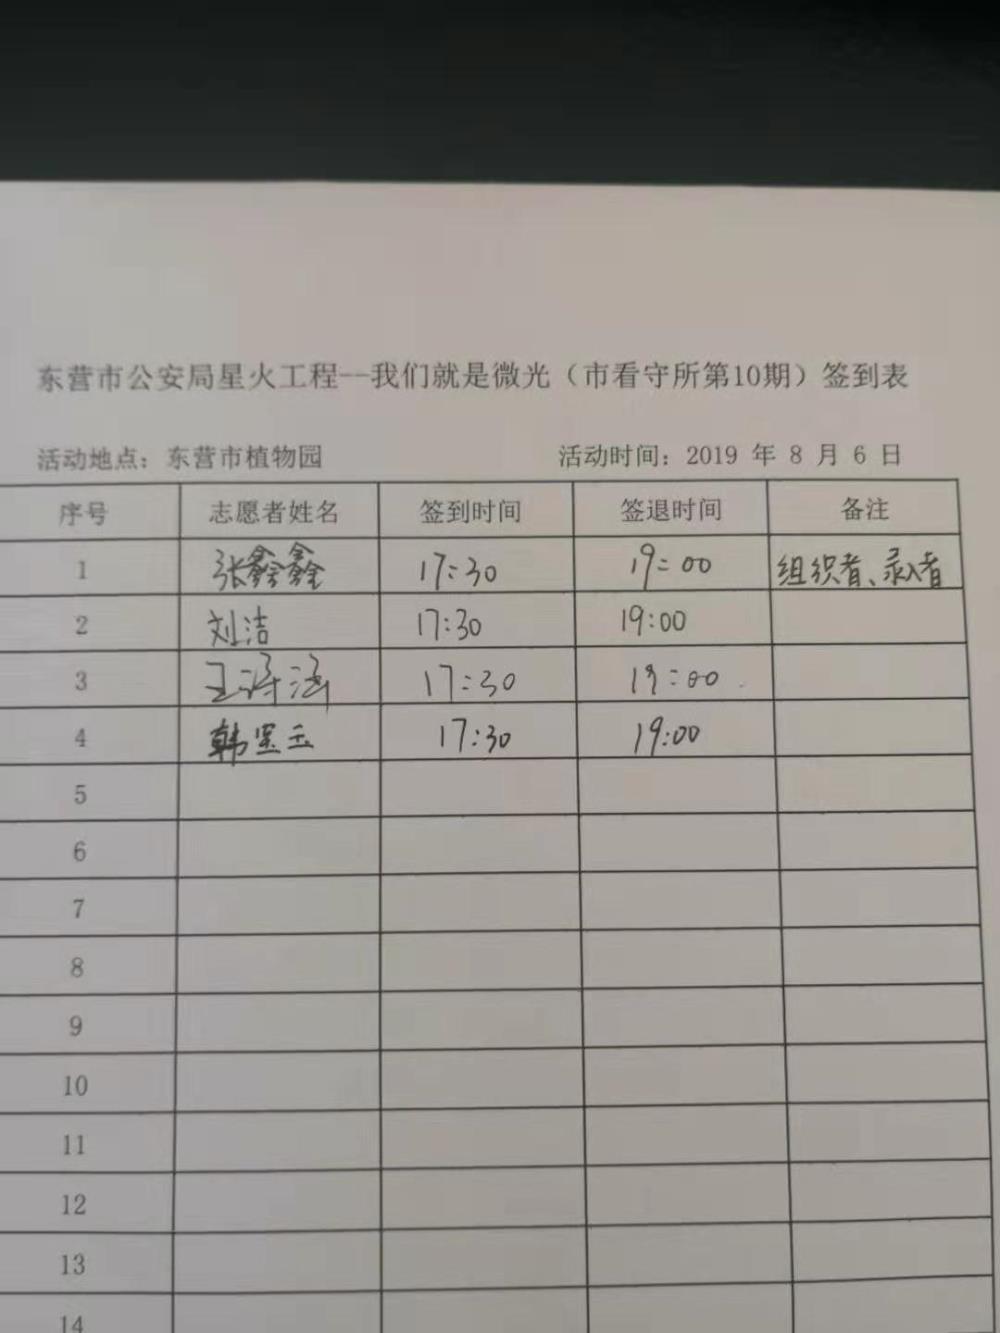 东营市公安局星火工程--我们就是微光（市看守所第10期）签到表
活动地点：东营市植物园 活动时间：2019 年 8 月 6 日
序号 志愿者姓名 签到时间 签退时间 备注
1 张鑫鑫 17:30 19:00 组织者、录入者
2 刘洁 17:30 19:00
3 王 涵 17:30 19:00
4 韩 玉 17:30 19:00
5
6
7
8
9
10
11
12
13
14